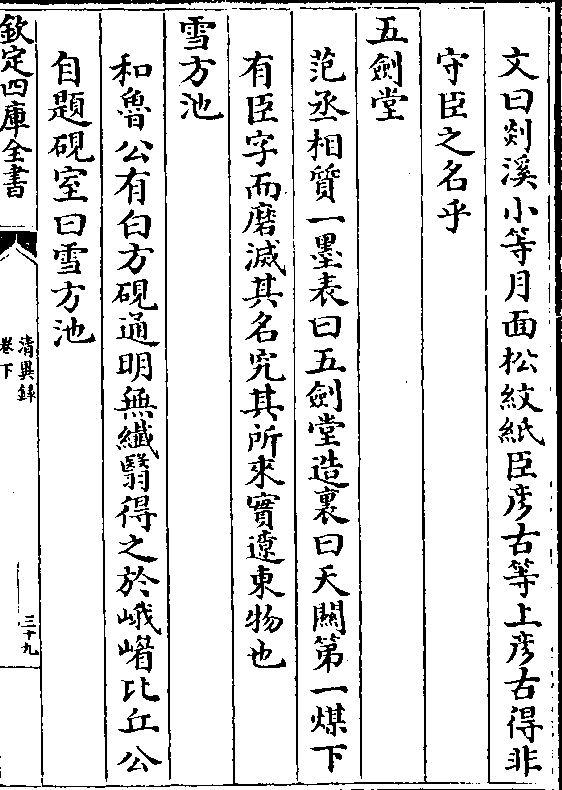 文曰剡溪小等月面松紋紙臣彥古等上彥古得非
守臣之名乎
五劍堂
范丞相質一墨表曰五劍堂造裏曰天關第一煤下
有臣字而磨滅其名究其所來實遼東物也
雪方池
和魯公有白方硯通明無纖翳得之於峨嵋比丘公
自題硯室曰雪方池
欽定四庫全書
清異錄
卷下
三十九